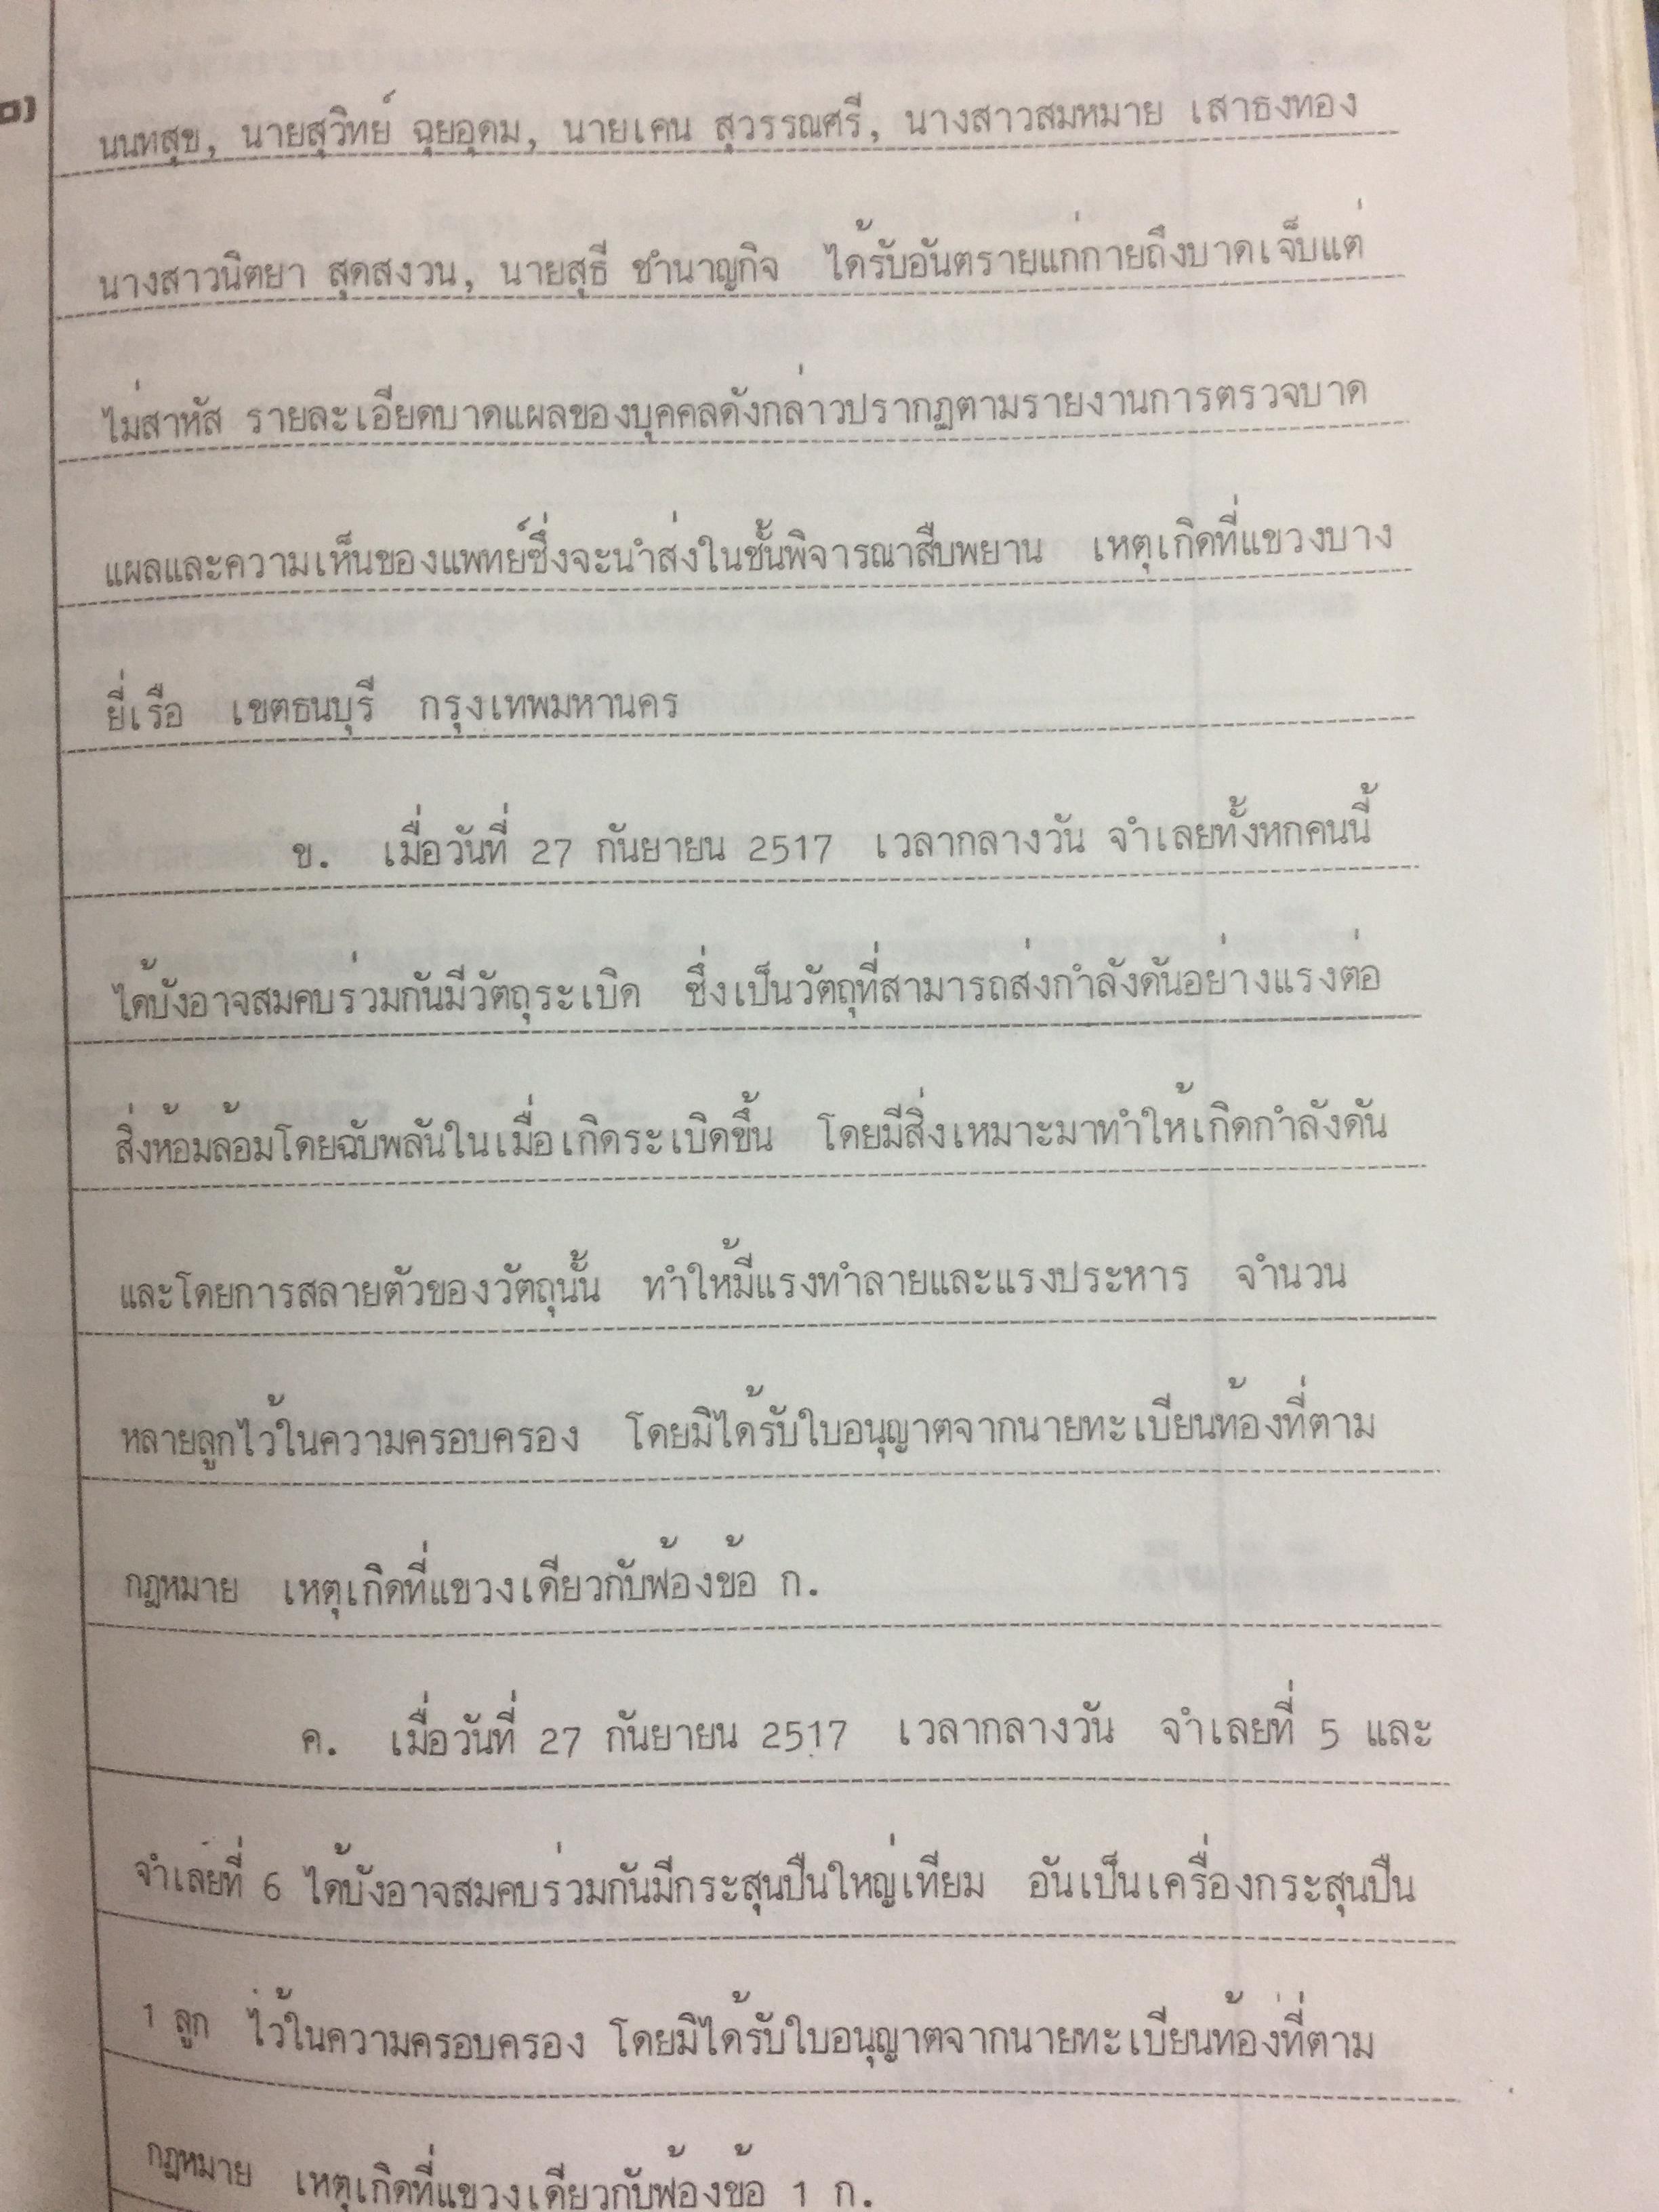 นนทสุข, นายสุวิทย์ ฉุยอุดม, นายเคน สุวรรณศรี, นางสาวสมหมาย เสาธงทอง
นางสาวนิตยา สุดสงวน, นายสุธี ชำนาญกิจ ได้รับอันตรายแก่กายถึงบาดเจ็บแต่
ไม่สาหัส รายละเอียดบาดแผลของบุคคลดังกล่าวปรากฏตามรายงานการตรวจบาด
แผลและความเห็นของแพทย์ซึ่งจะนำส่งในชั้นพิจารณาสืบพยาน เหตุเกิดที่แขวงบาง
ยี่เรือ เขตธนบุรี กรุงเทพมหานคร
ข. เมื่อวันที่ 27 กันยายน 2517 เวลากลางวัน จำเลยทั้งหกคนนี้
ได้บังอาจสมคบร่วมกันมีวัตถุระเบิด ซึ่งเป็นวัตถุที่สามารถส่งกำลังดันอย่างแรงต่อ
สิ่งห้อมล้อมโดยฉับพลันในเมื่อเกิดระเบิดขึ้น โดยมีสิ่งเหมาะมาทำให้เกิดกำลังดัน
และโดยการสลายตัวของวัตถุนั้น ทำให้มีแรงทำลายและแรงประหาร จำนวน
หลายลูกไว้ในความครอบครอง โดยมิได้รับใบอนุญาตจากนายทะเบียนท้องที่ตาม
กฎหมาย เหตุเกิดที่แขวงเดียวกับฟ้องข้อ ก.
ค. เมื่อวันที่ 27 กันยายน 2517 เวลากลางวัน จำเลยที่ 5 และ
จำเลยที่ 6 ได้บังอาจสมคบร่วมกันมีกระสุนปืนใหญ่เทียม อันเป็นเครื่องกระสุนปืน
1 ลูก ไว้ในความครอบครอง โดยมิได้รับใบอนุญาตจากนายทะเบียนท้องที่ตาม
กฎหมาย เหตุเกิดที่แขวงเดียวกับฟ้องข้อ 1 ก.